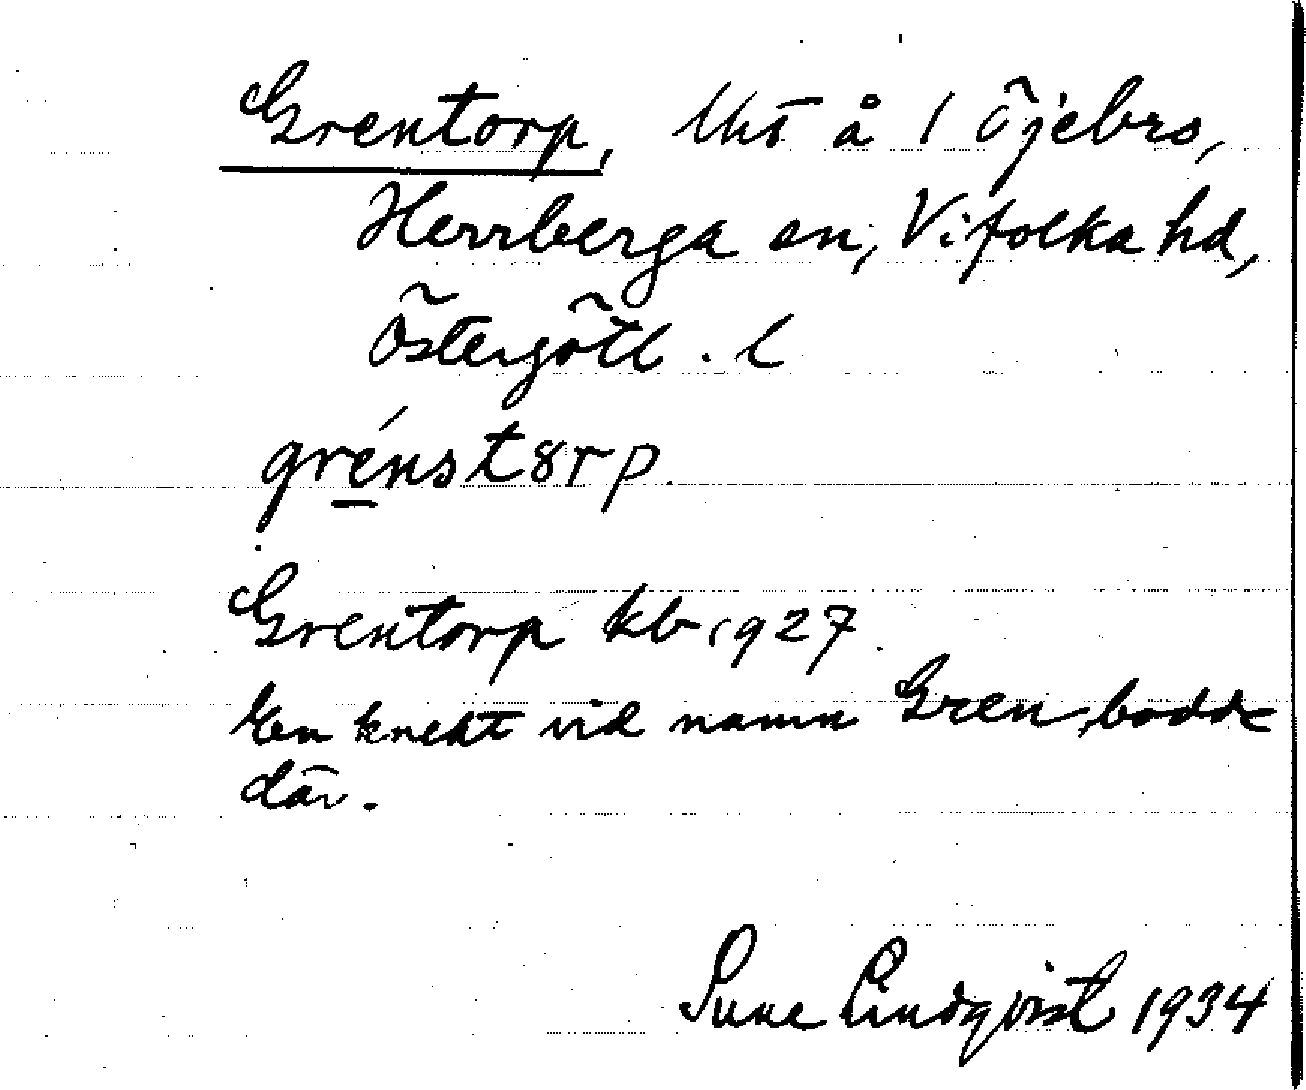 Grentorp, lht å 1 Öjebro,
Herrberga sn, Vifolka hd,
Östergötl. l
grénstorp.
Grentorp kb 1927.
En knekt vid namn Gren bodde
där.
Sune Lindqvist 1934